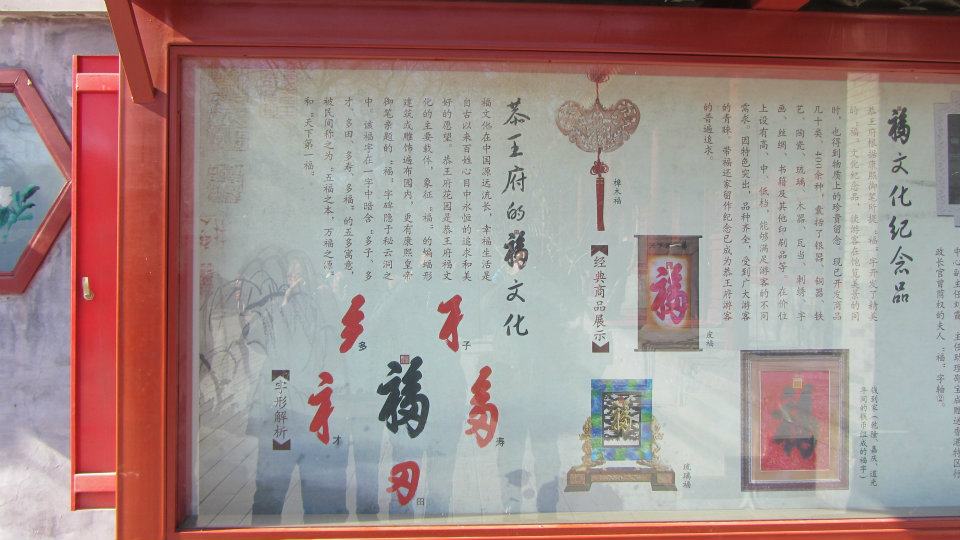 政长官曾荫权的夫人“福”字轴②。
福文化纪念品
恭王府根据康熙御笔所题“福”字开发了精美
的“福”文化纪念品，使游客在饱览美景的同
时，也得到物质上的珍贵留念。现已开发商品
几十类、400余种，囊括了银器、铜器、铁
艺、陶瓷、琉璃、木器、瓦当、刺绣、字
画、丝绸、书籍及其他印刷品等。在价位
上设有高、中、低档，能够满足游客的不同
需求。因特色突出，品种齐全，受到广大游客
的青睐，带福还家留作纪念已成为恭王府游客
的普遍追求。
钱到家（乾隆、嘉庆、道光
年间的钱币组成的福字）
皮福
琉璃福
樟木福
【经典商品展示】
恭王府的福文化
福文化在中国源远流长，幸福生活是
自古以来百姓心目中永恒的追求和美
好的愿望。恭王府花园是恭王府福文
化的主要载体，象征“福”的蝙蝠形
建筑或雕饰遍布园内，更有康熙皇帝
御笔亲题的“福”字碑隐于秘云洞之
中，该福字在一字中暗含“多子、多
才、多田、多寿、多福”的五多寓意，
被民间称之为“五福之本，万福之源”
和“天下第一福”。
【字形解析】
多
子
才
福
寿
田